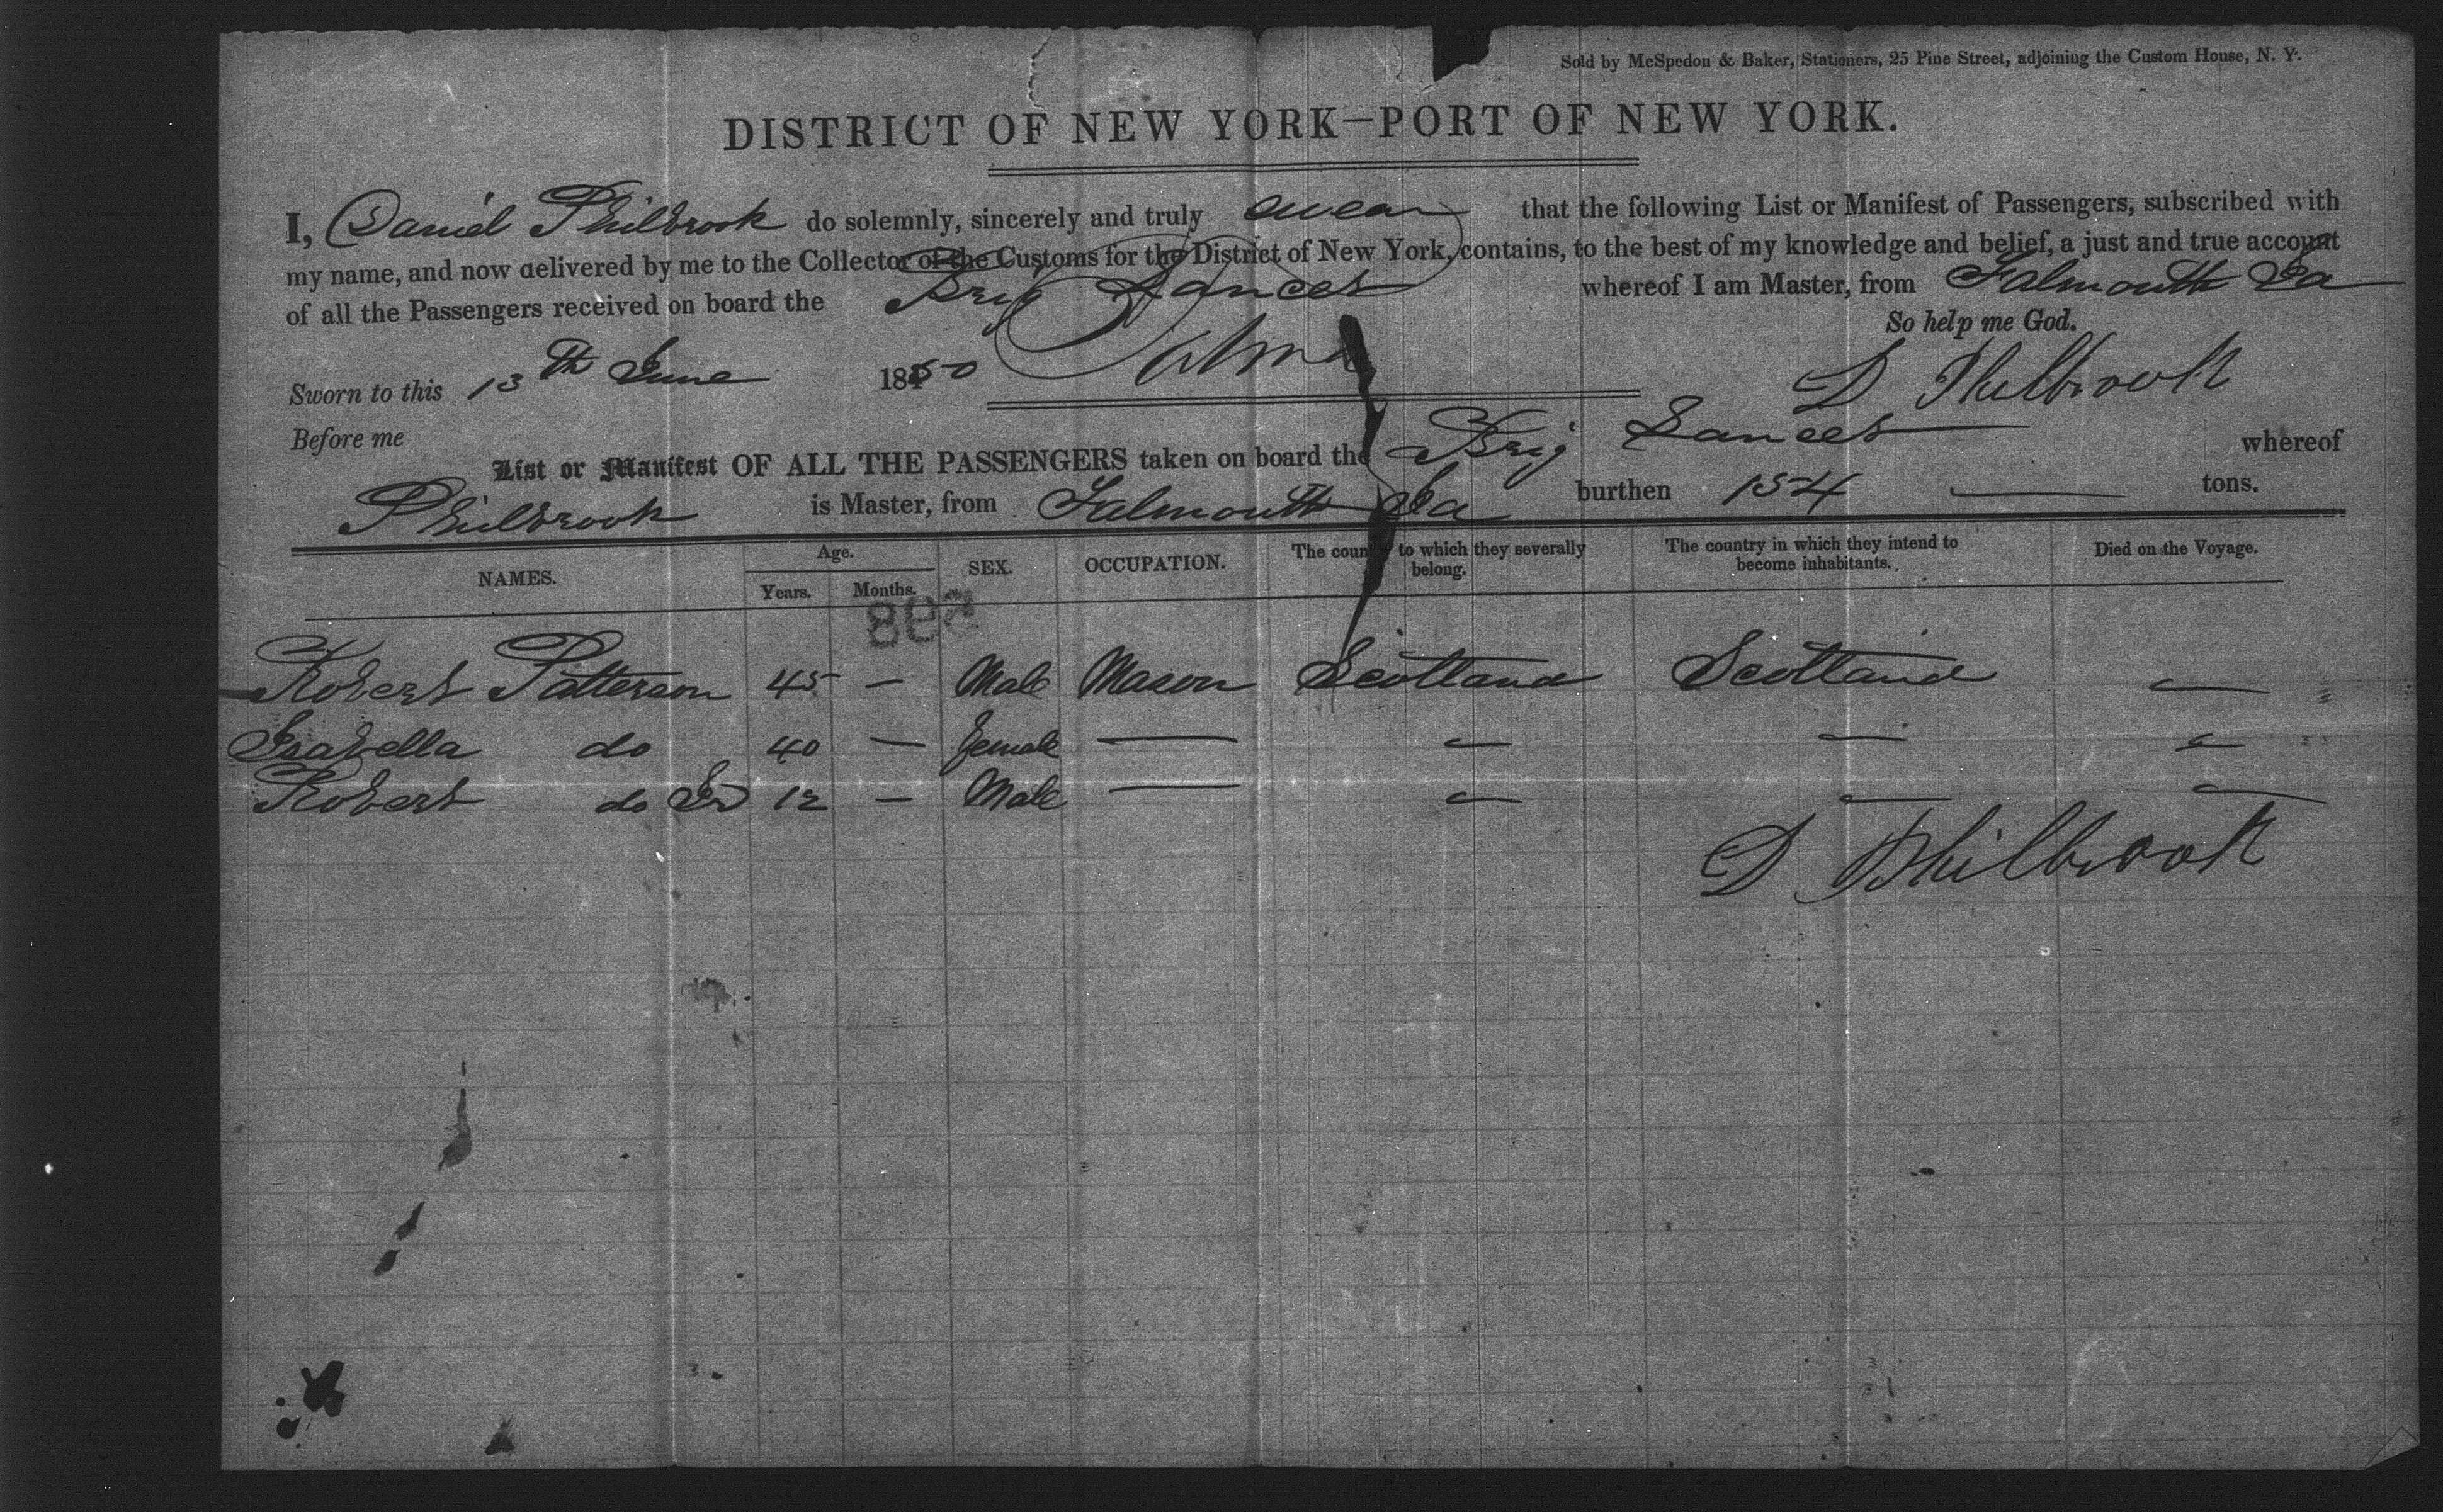 Sold by McSpedon & Baker, Stationers, 25 Pine Street, adjoining the Custom House, N. Y.
DISTRICT OF NEW YORK—PORT OF NEW YORK.
I, Daniel Philbrook do solemnly, sincerely and truly swear that the following List or Manifest of Passengers, subscribed with
my name, and now delivered by me to the Collector of the Customs for the District of New York, contains, to the best of my knowledge and belief, a just and true account
of all the Passengers received on board the Brig whereof I am Master, from Falmouth Ja
So help me God.
Sworn to this 13th June 1850
D Philbrook
Before me
List or Manifest OF ALL THE PASSENGERS taken on board the Brig whereof
Philbrook is Master, from Falmouth Ja burthen 154 tons.
NAMES. Age. Years. Months. SEX. OCCUPATION. The country to which they severally belong. The country in which they intend to become inhabitants. Died on the Voyage.
898
Robert Patterson 45 — Male Mason Scotland Scotland —
Isabella do 40 — Female — — — —
Robert do Jr 12 — Male — — — —
D Philbrook